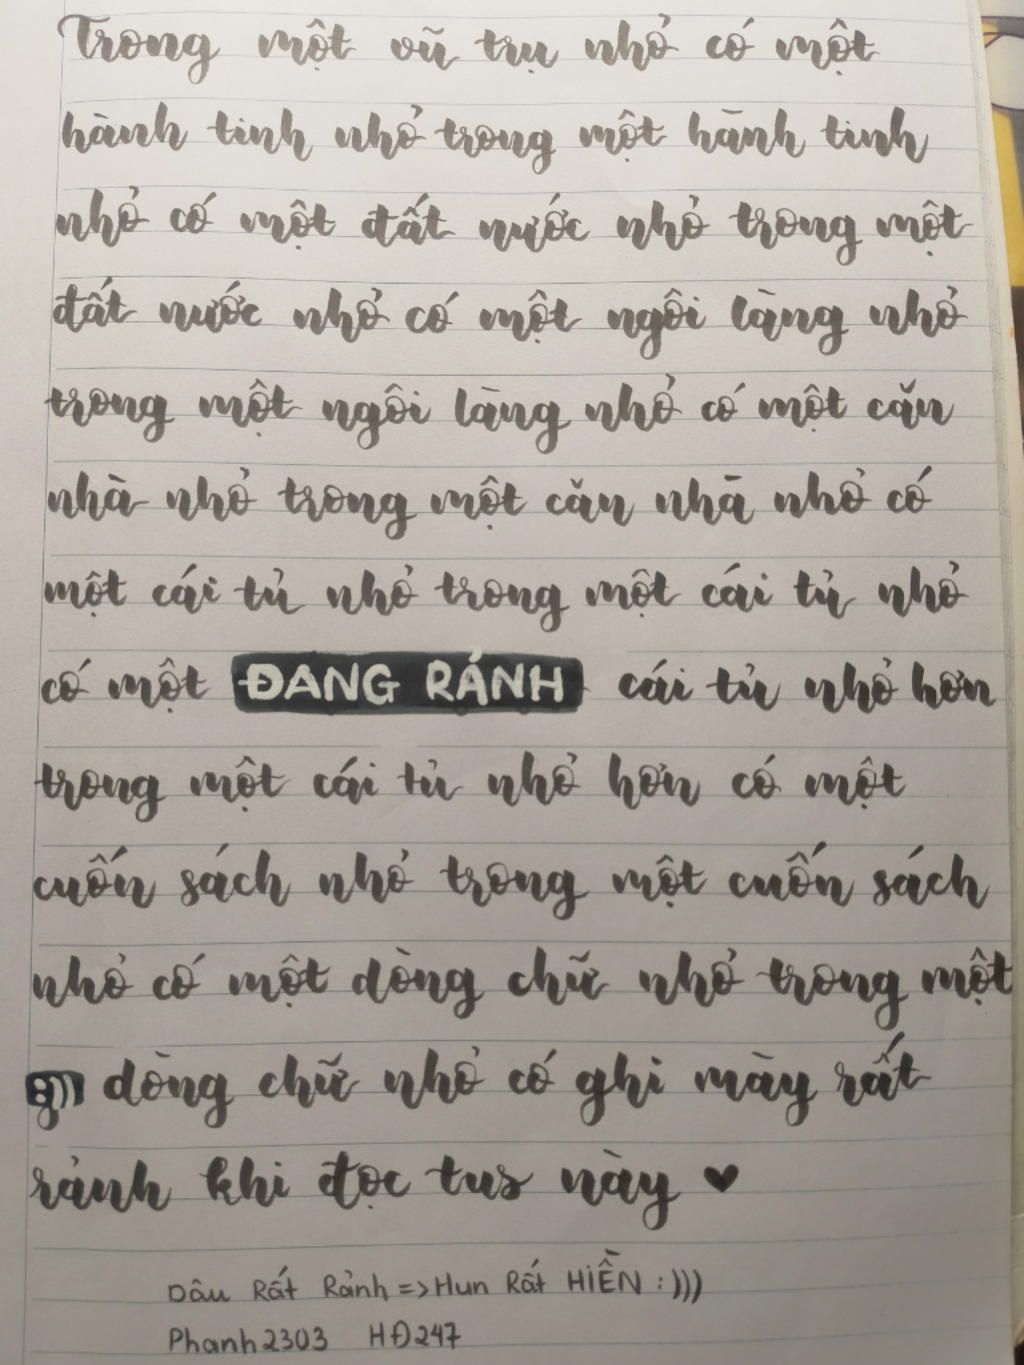 Trong một vũ trụ nhỏ có một
hành tinh nhỏ trong một hành tinh
nhỏ có một đất nước nhỏ trong một
đất nước nhỏ có một ngôi làng nhỏ
trong một ngôi làng nhỏ có một căn
nhà nhỏ trong một căn nhà nhỏ có
một cái tủ nhỏ trong một cái tủ nhỏ
có một ĐANG RẢNH cái tủ nhỏ hơn
trong một cái tủ nhỏ hơn có một
cuốn sách nhỏ trong một cuốn sách
nhỏ có một dòng chữ nhỏ trong một
:))) dòng chữ nhỏ có ghi mày rất
rảnh khi đọc tus này ♥
Dâu Rất Rảnh => Hun Rất HIỀN :)))
Phanh2303 HĐ247